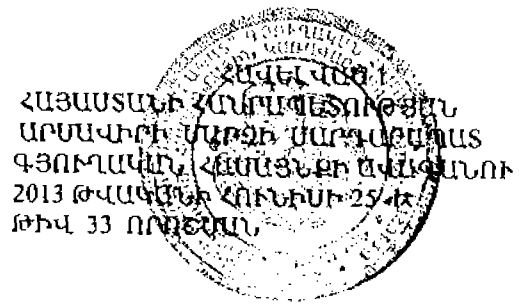 ՀԱՎԵԼՎԱԾ 1
ՀԱՅԱՍՏԱՆԻ ՀԱՆՐԱՊԵՏՈՒԹՅԱՆ
ԱՐՄԱՎԻՐԻ ՄԱՐԶԻ ՄԱՐԳԱՐԱՊԱՏ
ԳՅՈՒՂԱԿԱՆ ՀԱՄԱՅՆՔԻ ԱՎԱԳԱՆՈՒ
2013 ԹՎԱԿԱՆԻ ՀՈՒՆԻՍԻ 25-Ի
ԹԻՎ 33 ՈՐՈՇՄԱՆ